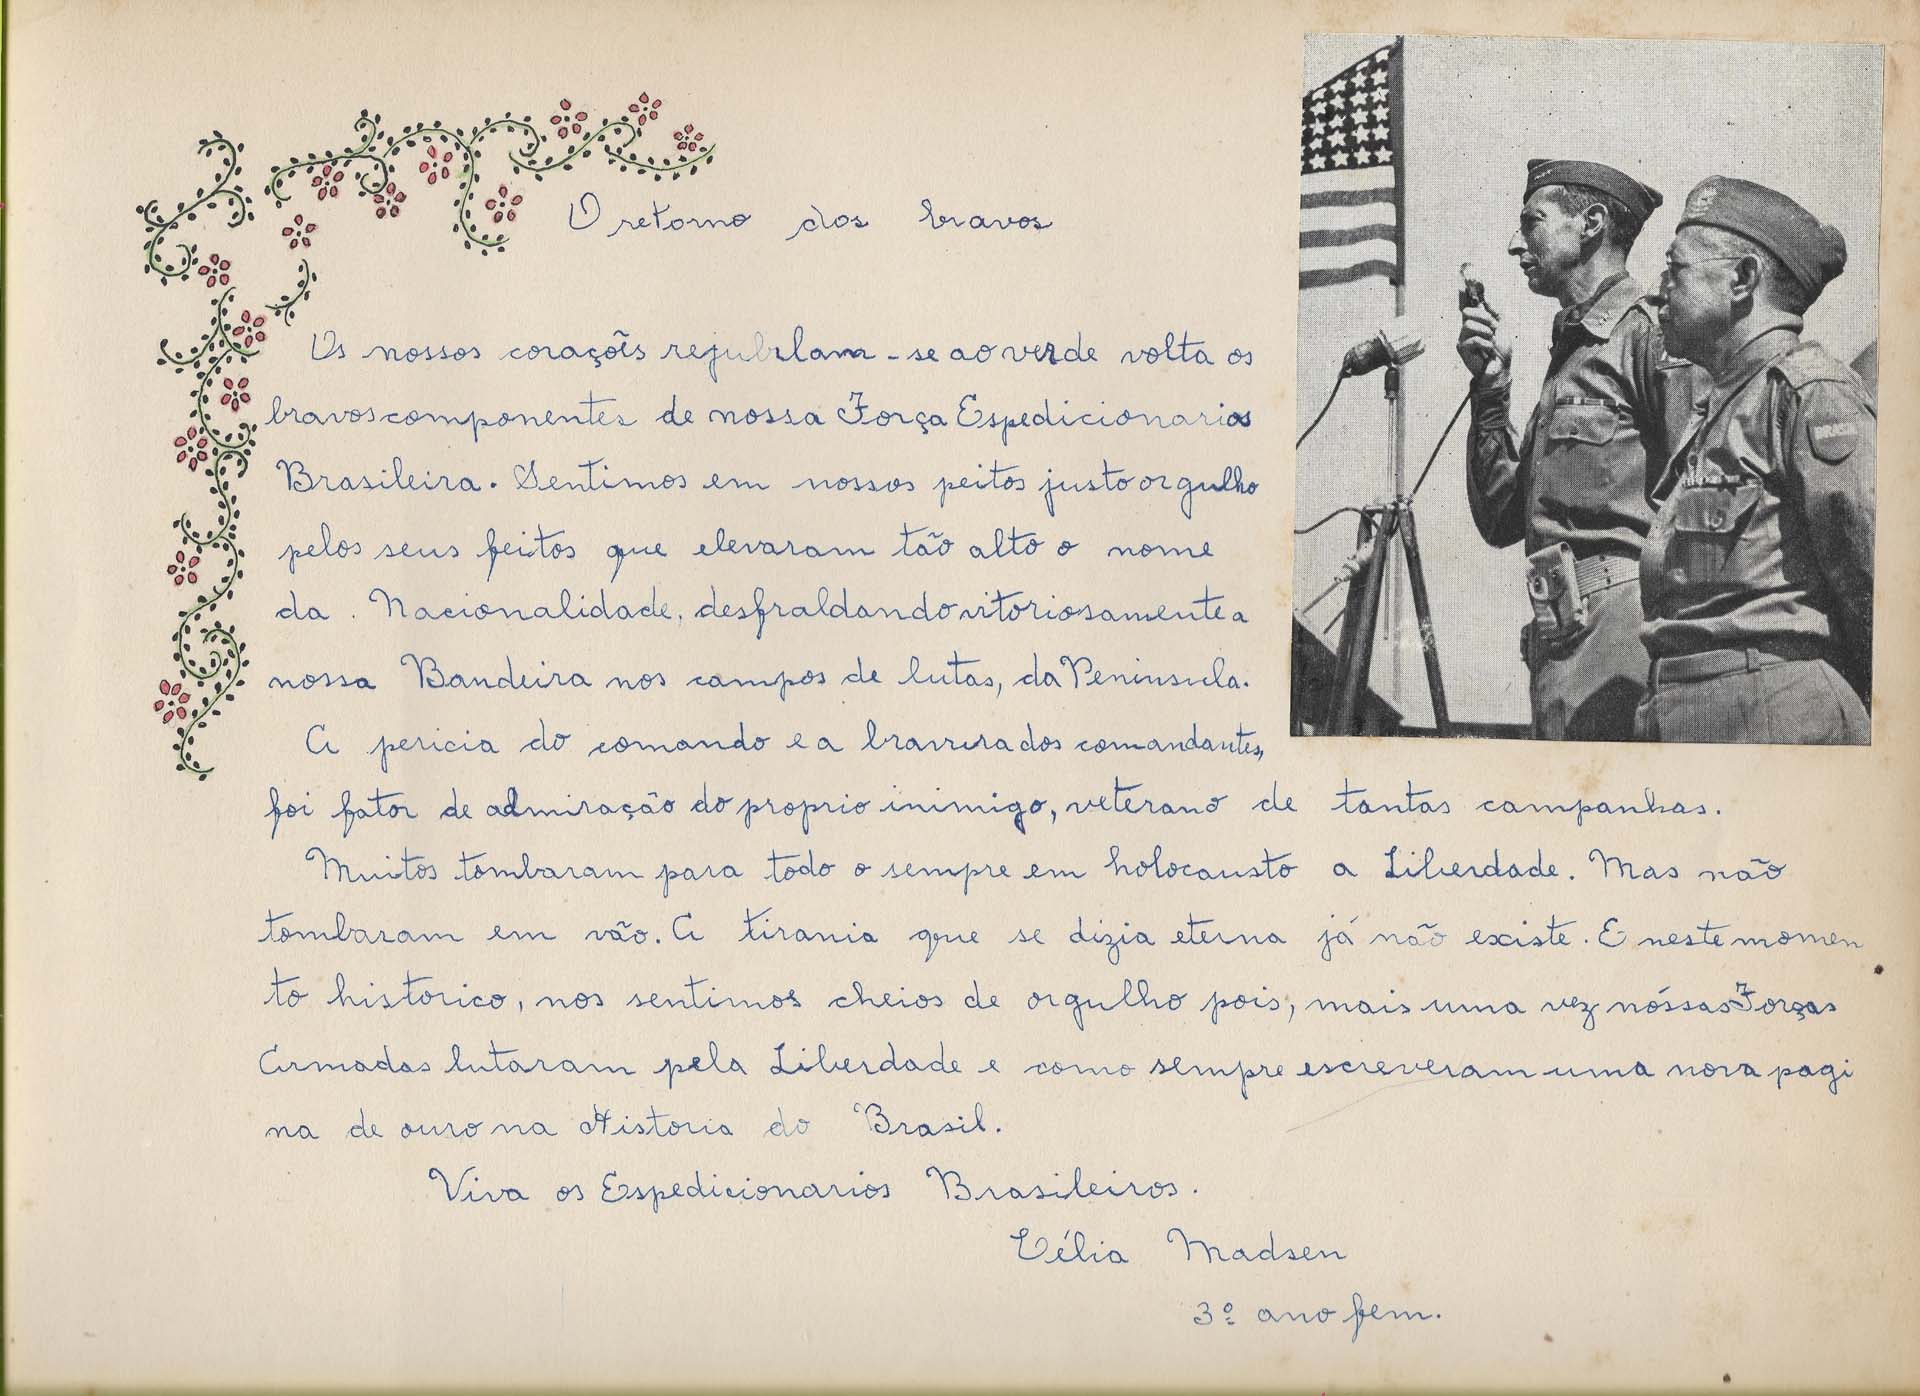 O retorno dos bravos
Os nossos corações rejubilam-se ao verde volta os
bravos componentes de nossa Força Espedicionarios
Brasileira. Sentimos em nossos peitos justo orgulho
pelos seus feitos que elevaram tão alto o nome
da Nacionalidade, desfraldando vitoriosamente a
nossa Bandeira nos campos de lutas, da Peninsula.
A pericia do comando e a bravura dos comandantes,
foi fator de admiração do proprio inimigo, veterano de tantas campanhas.
Muitos tombaram para todo o sempre em holocausto a Liberdade. Mas não
tombaram em vão. A tirania que se dizia eterna já não existe. E neste momen
to historico, nos sentimos cheios de orgulho pois, mais uma vez nóssas Forças
Armadas lutaram pela Liberdade e como sempre escreveram uma nova pagi
na de ouro na Historia do Brasil.
Viva os Espedicionarios Brasileiros.
Célia Madsen
3º ano fem.
BRASIL